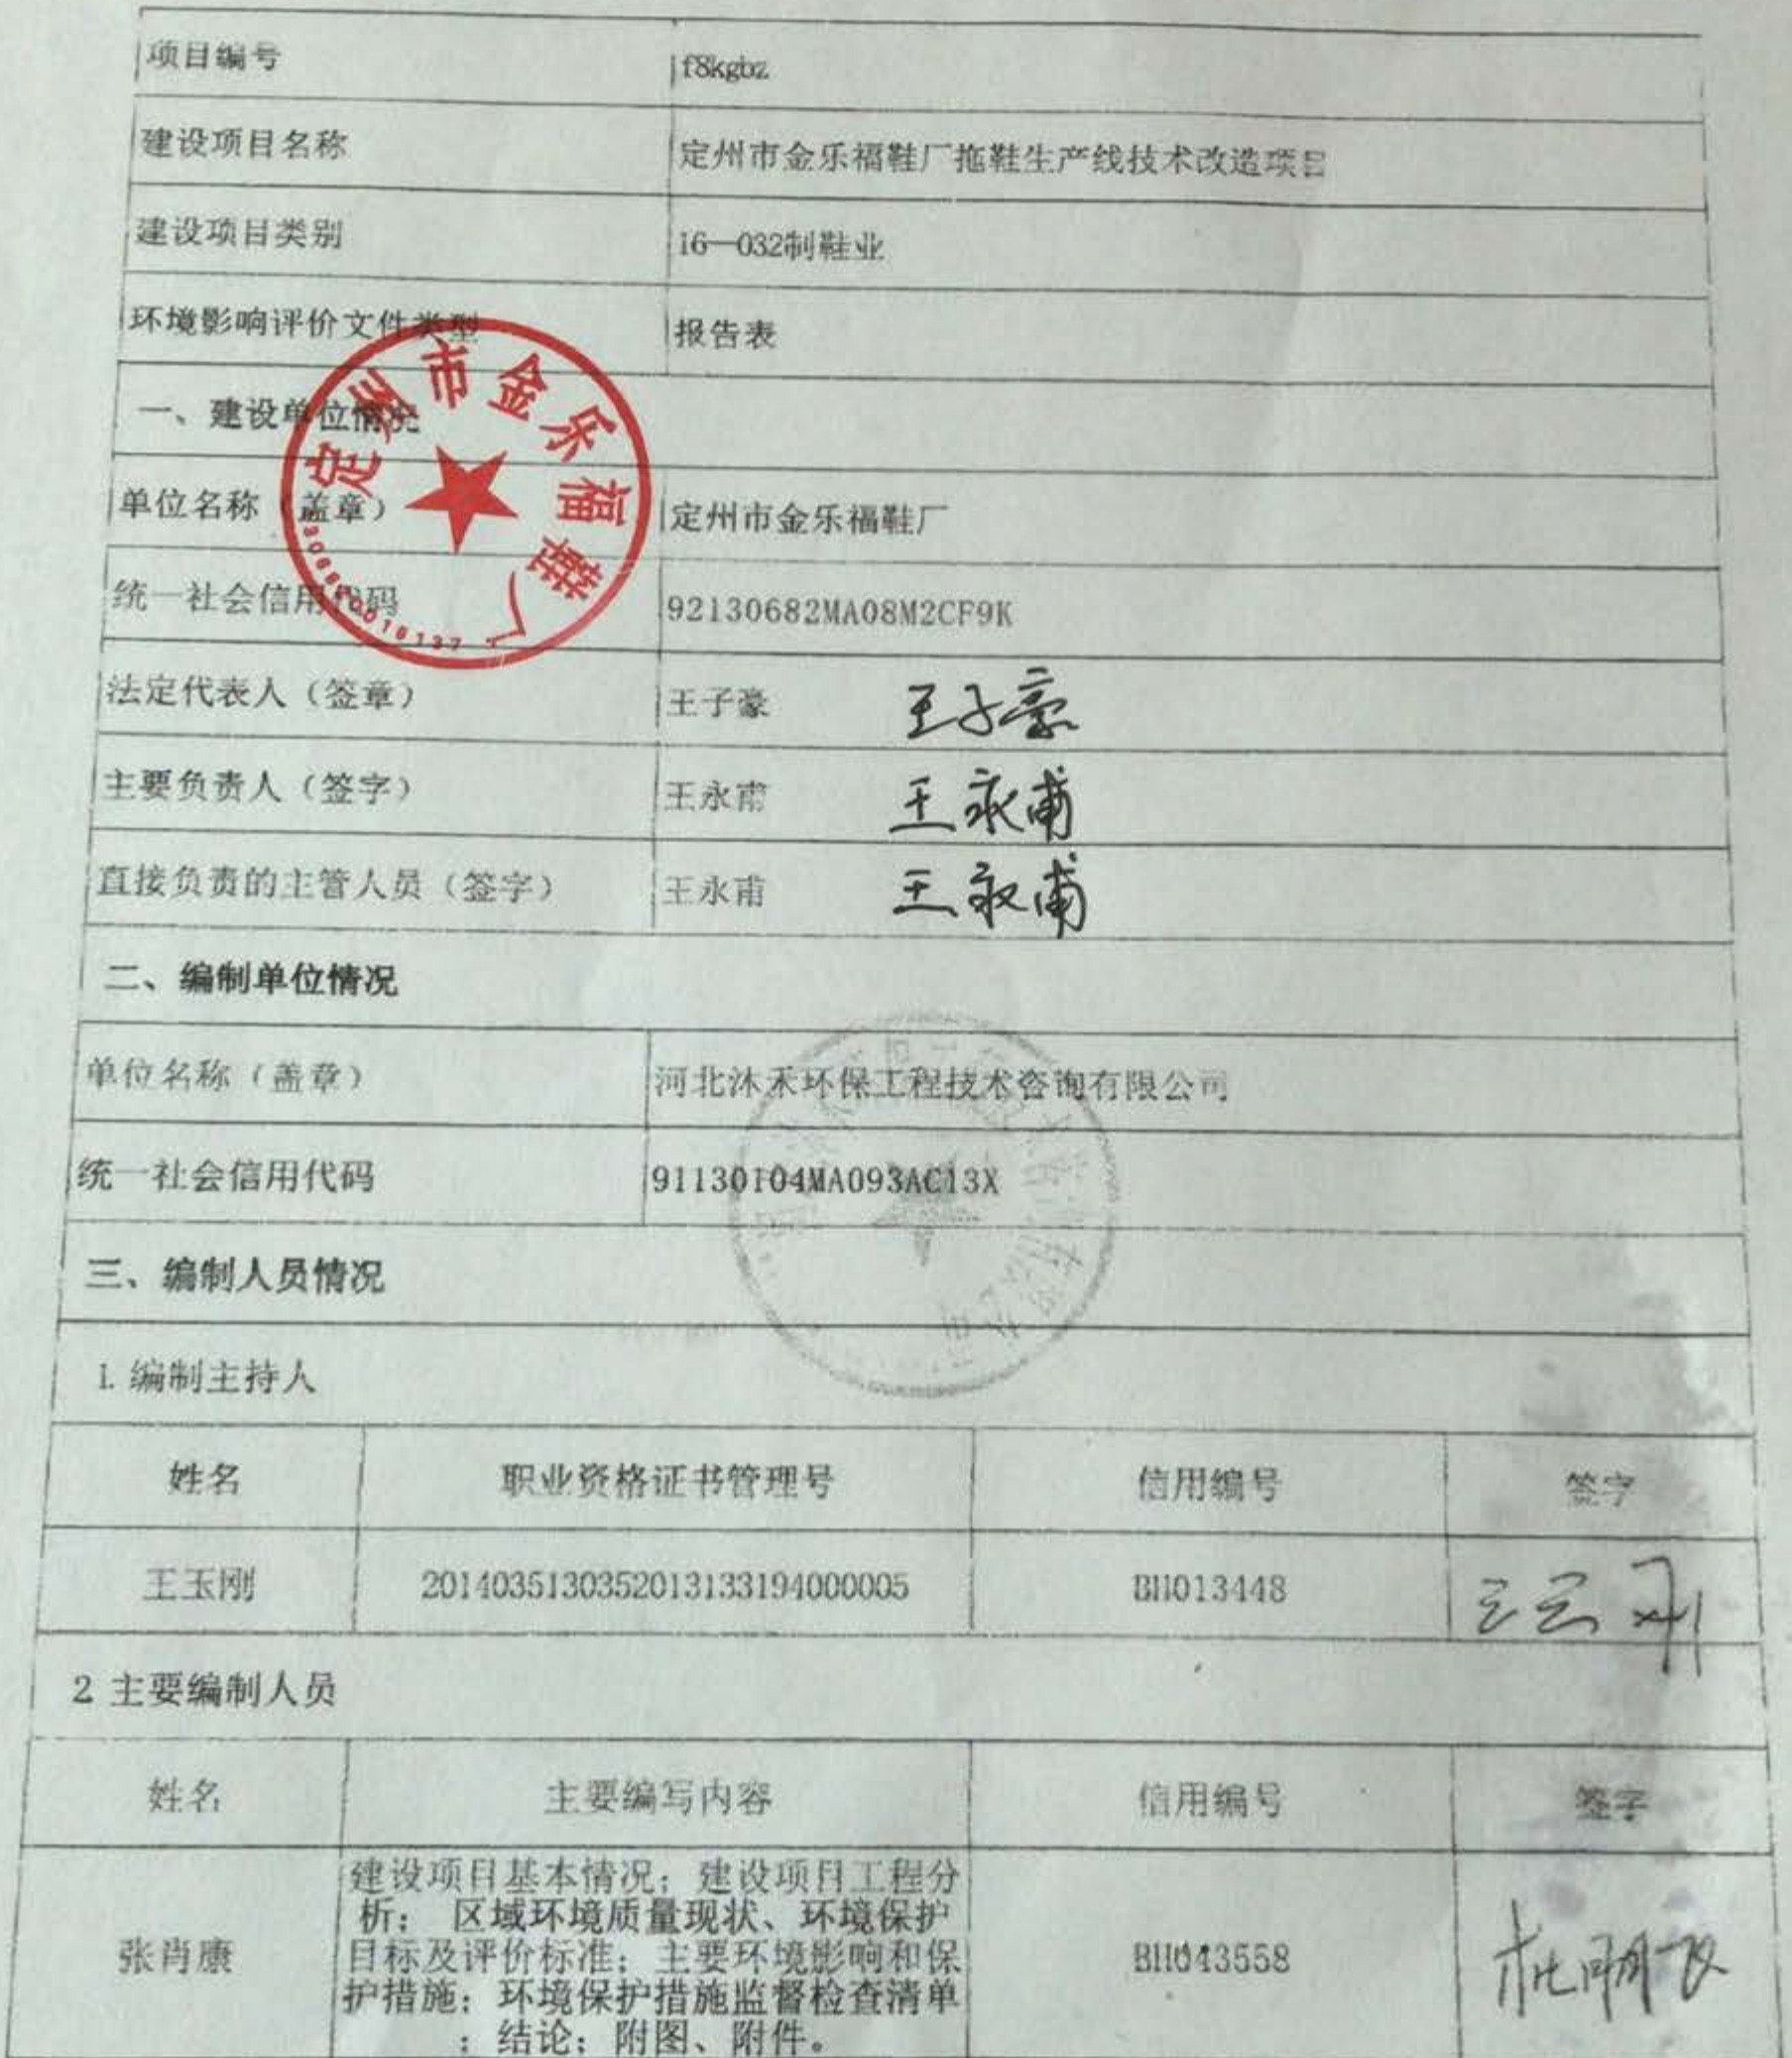 项目编号 f8kgbz
建设项目名称 定州市金乐福鞋厂拖鞋生产线技术改造项目
建设项目类别 16—032制鞋业
环境影响评价文件类型 报告表
一、建设单位情况
单位名称（盖章） 定州市金乐福鞋厂
统一社会信用代码 92130682MA08M2CF9K
定州市金乐福鞋厂
法定代表人（签章） 王子豪 王子豪
主要负责人（签字） 王永甫 王永甫
直接负责的主管人员（签字） 王永甫 王永甫
二、编制单位情况
单位名称（盖章） 河北沐禾环保工程技术咨询有限公司
统一社会信用代码 91130104MA093AC13X
三、编制人员情况
1. 编制主持人
姓名 职业资格证书管理号 信用编号 签字
王玉刚 2014035130352013133194000005 BH013448 王玉刚
2 主要编制人员
姓名 主要编写内容 信用编号 签字
建设项目基本情况；建设项目工程分
析； 区域环境质量现状、环境保护
张肖康 目标及评价标准；主要环境影响和保 BH043558
护措施；环境保护措施监督检查清单
；结论；附图、附件。